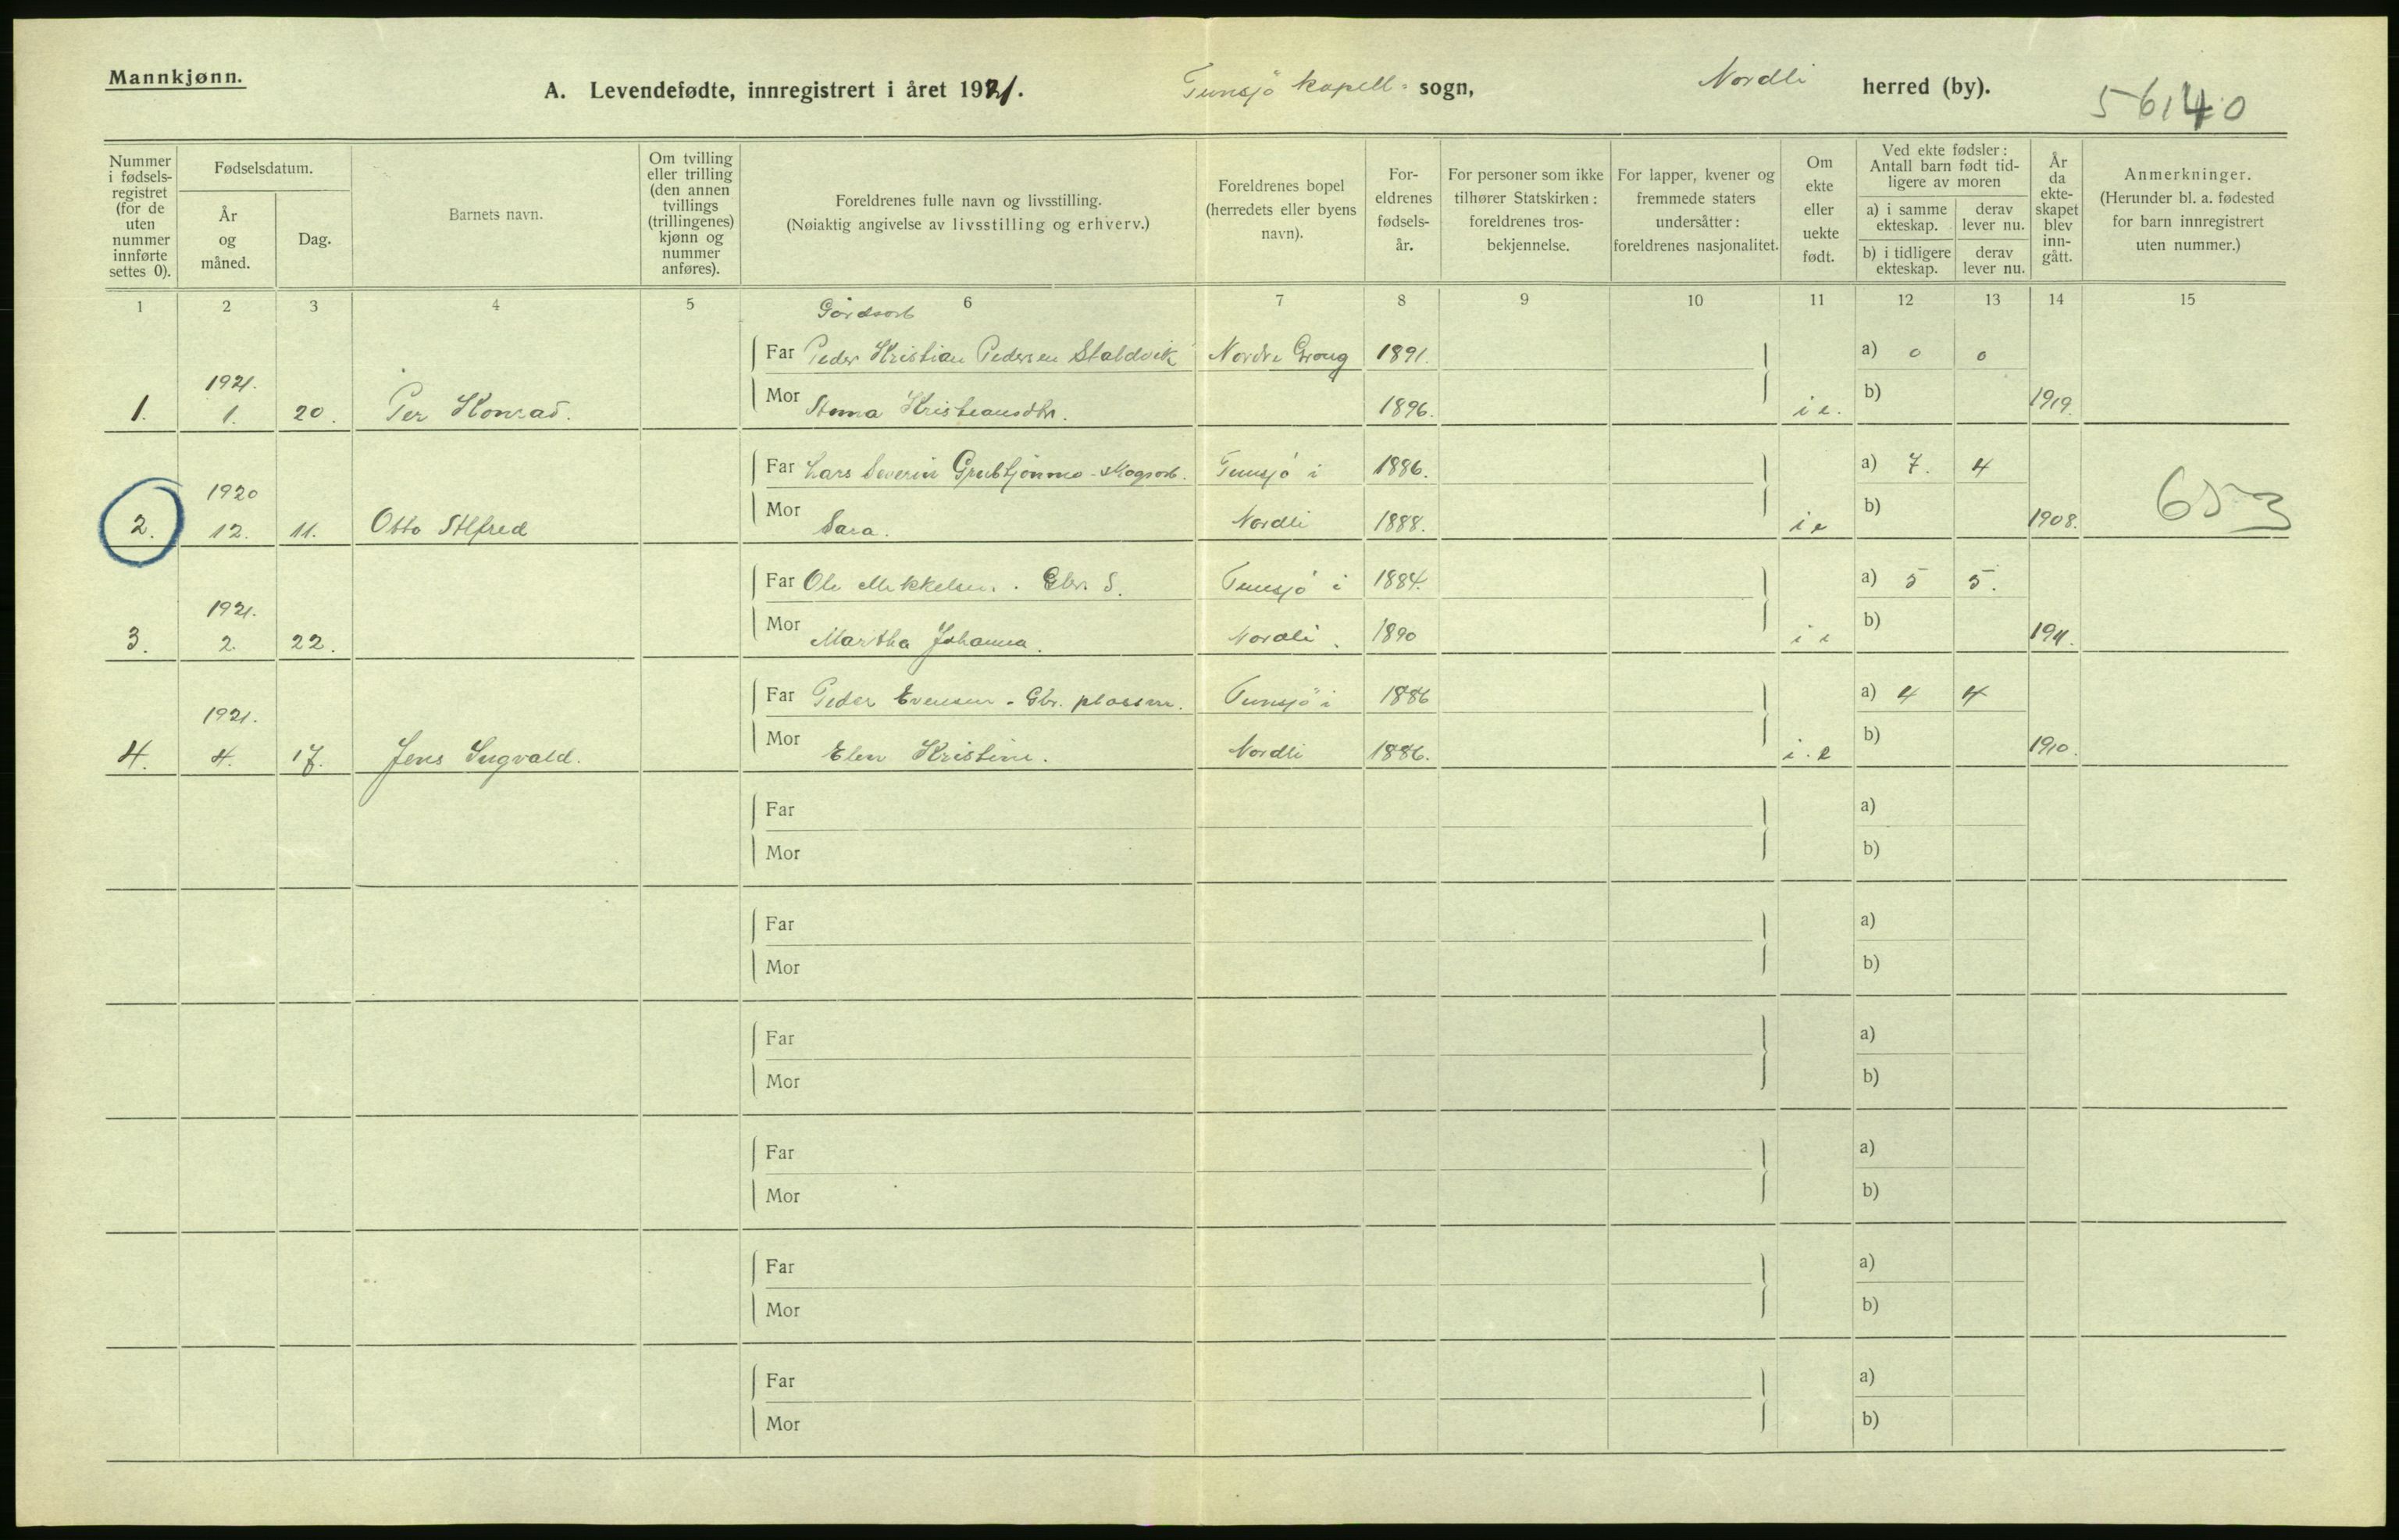 Mannkjønn.
A. Levendefødte, innregistrert i året 1921. Tunsjø kapell sogn, Nordli herred (by).
56140
Nummer i fødsels-registret (for de uten nummer innførte settes 0).
Fødselsdatum.
År og måned.
Dag.
Barnets navn.
Om tvilling eller trilling (den annen tvillings (trillingenes) kjønn og nummer anføres).
Foreldrenes fulle navn og livsstilling.
(Nøiaktig angivelse av livsstilling og erhverv.)
Foreldrenes bopel (herredets eller byens navn).
For-eldrenes fødsels-år.
For personer som ikke tilhører Statskirken: foreldrenes tros-bekjennelse.
For lapper, kvener og fremmede staters undersåtter: foreldrenes nasjonalitet.
Om ekte eller uekte født.
Ved ekte fødsler: Antall barn født tid-ligere av moren
a) i samme ekteskap.
derav lever nu.
b) i tidligere ekteskap.
derav lever nu.
År da ekte-skapet blev inn-gått.
Anmerkninger.
(Herunder bl. a. fødested for barn innregistrert uten nummer.)
1 2 3 4 5 6 7 8 9 10 11 12 13 14 15
Gårdsarb
Far Peder Kristian Pedersen Staldvik Nordre Grong 1891. a) 0 0
1921.
1. 1. 20. Per Konrad. Mor Anna Kristiansdtr. 1896. i e. b) 1919.
Far Lars Severin Grubtjønmo - Skogsarb. Tunsjø i 1886. a) 7. 4
1920
2. 12. 11. Otto Alfred Mor Sara. Nordli 1888. i e b) 1908.
653
Far Ole Mikkelsen. Gbr. S. Tunsjø i 1884. a) 5 5.
1921.
3. 2. 22. Mor Martha Johanna. Nordli. 1890 i e b) 1911.
Far Peder Evensen - Gbr. Tunsjø i 1886 a) 4 4
1921.
4. 4. 17. Jens Ingvald. Mor Elen Kristine. Nordli 1886. i. e b) 1910.
Far a)
Mor b)
Far a)
Mor b)
Far a)
Mor b)
Far a)
Mor b)
Far a)
Mor b)
Far a)
Mor b)